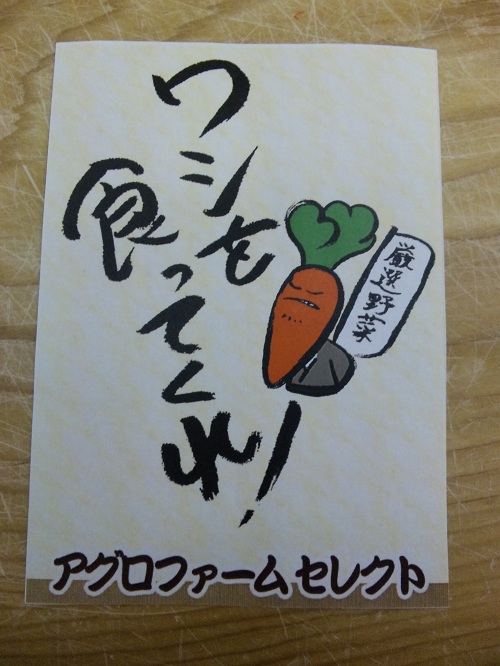 ワシを
食ってくれ！
厳選野菜
アグロファームセレクト